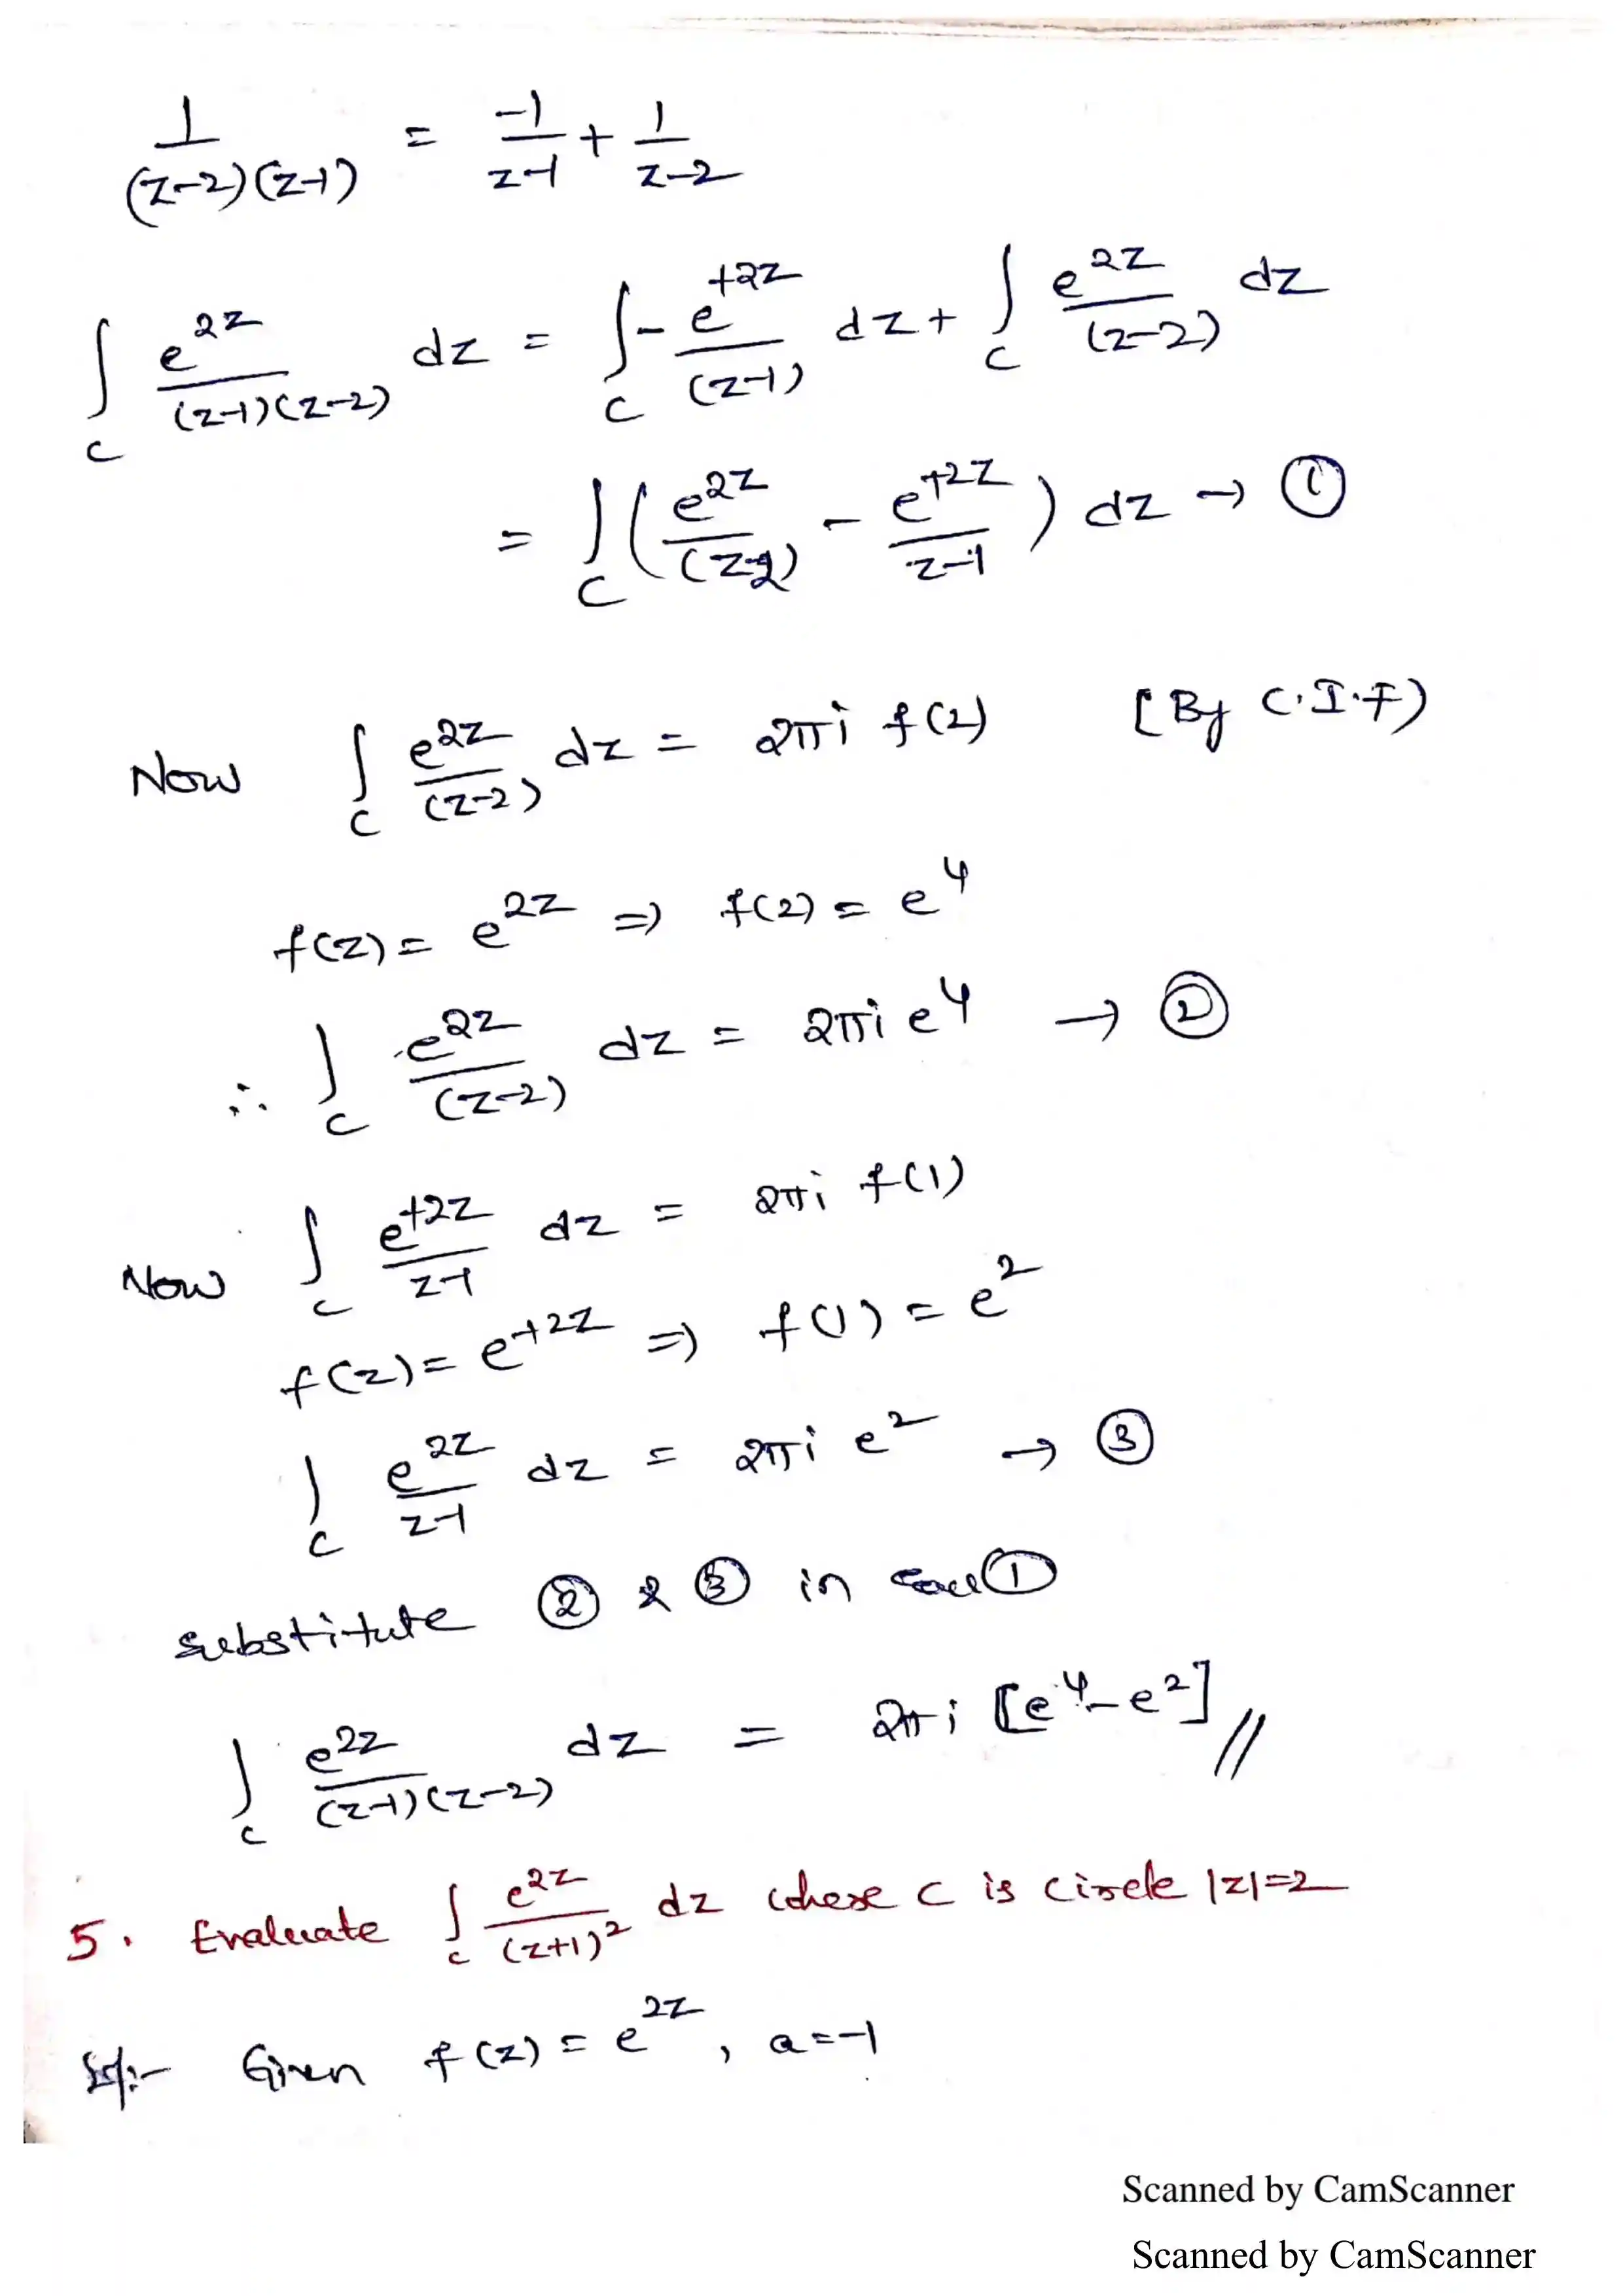 1/((z-2)(z-1)) = -1/(z-1) + 1/(z-2)
∫_C e^{2z}/((z-1)(z-2)) dz = ∫_C - e^{+2z}/(z-1) dz + ∫_C e^{2z}/(z-2) dz
= ∫_C ( e^{2z}/(z-2) - e^{+2z}/(z-1) ) dz → ①
Now ∫_C e^{2z}/(z-2) dz = 2πi f(2) [By C.I.F)
f(z) = e^{2z} ⇒ f(2) = e^4
∴ ∫_C e^{2z}/(z-2) dz = 2πi e^4 → ②
Now ∫_C e^{+2z}/(z-1) dz = 2πi f(1)
f(z) = e^{+2z} ⇒ f(1) = e^2
∫_C e^{2z}/(z-1) dz = 2πi e^2 → ③
substitute ② & ③ in ①
∫_C e^{2z}/((z-1)(z-2)) dz = 2πi [e^4 - e^2] //
5. Evaluate ∫_C e^{2z}/(z+1)^2 dz where C is circle |z|=2
Sol:- Given f(z) = e^{2z}, a = -1
Scanned by CamScanner
Scanned by CamScanner